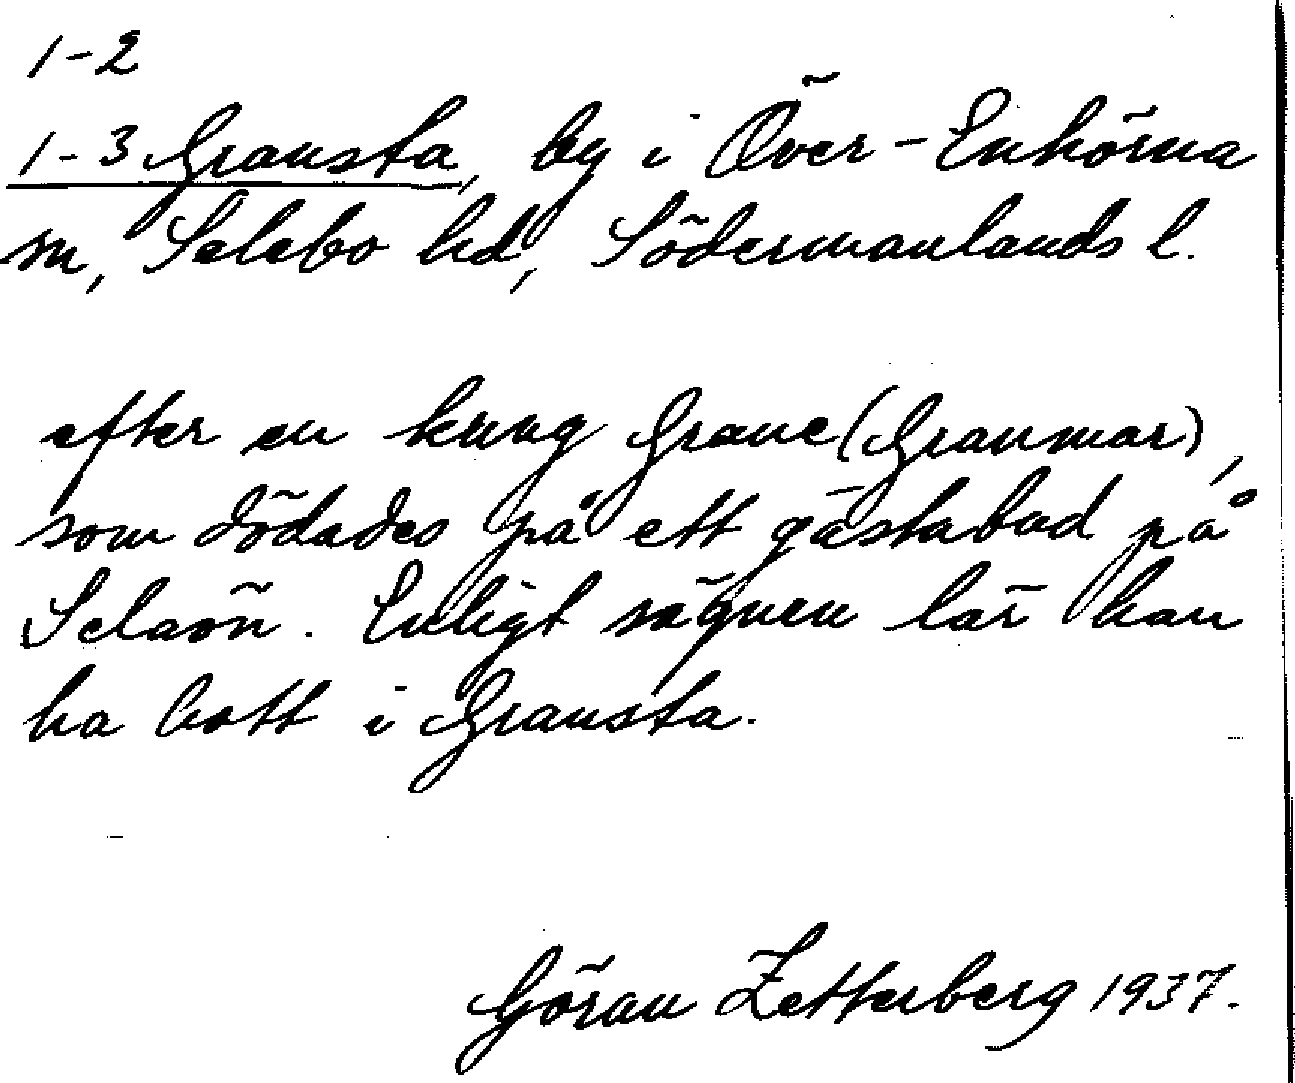 1-2
1-3 Gransta, by i Över-Enhörna
sn, Selebo hd, Södermanlands l.
efter en kung Grane (Granmar),
som dödades på ett gästabud på
Selaön. Enligt sägnen lär han
ha bott i Gransta.
Göran Zetterberg 1937.